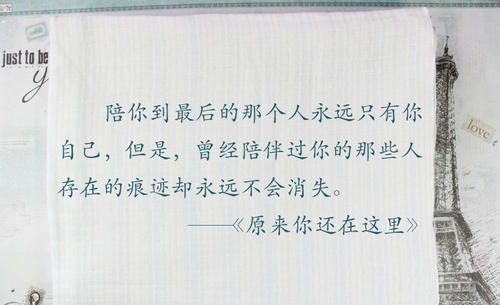 just to be
y
love
陪你到最后的那个人永远只有你
自己，但是，曾经陪伴过你的那些人
存在的痕迹却永远不会消失。
——《原来你还在这里》